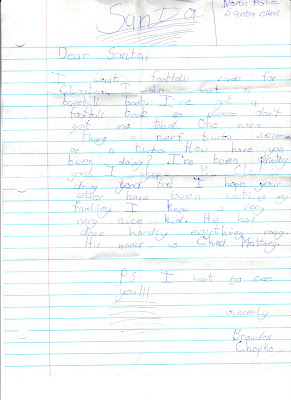 SanDa
North Pole
Santa Claus
Dear Santa,
I want football cards for
I also want a
baseball book. I've got a
football book so please don't
get me that. One more
Thing a nerf
or a turbo. How have you
been doing? I've been pretty
good I hope Mrs. Claus is
doing good too. I hope your
elves have been
I know a very
very nice kid. He has
done hardly enything
His name is Chad
P.S. I want to see
you!!!
sincerly
Brandon
Chopko